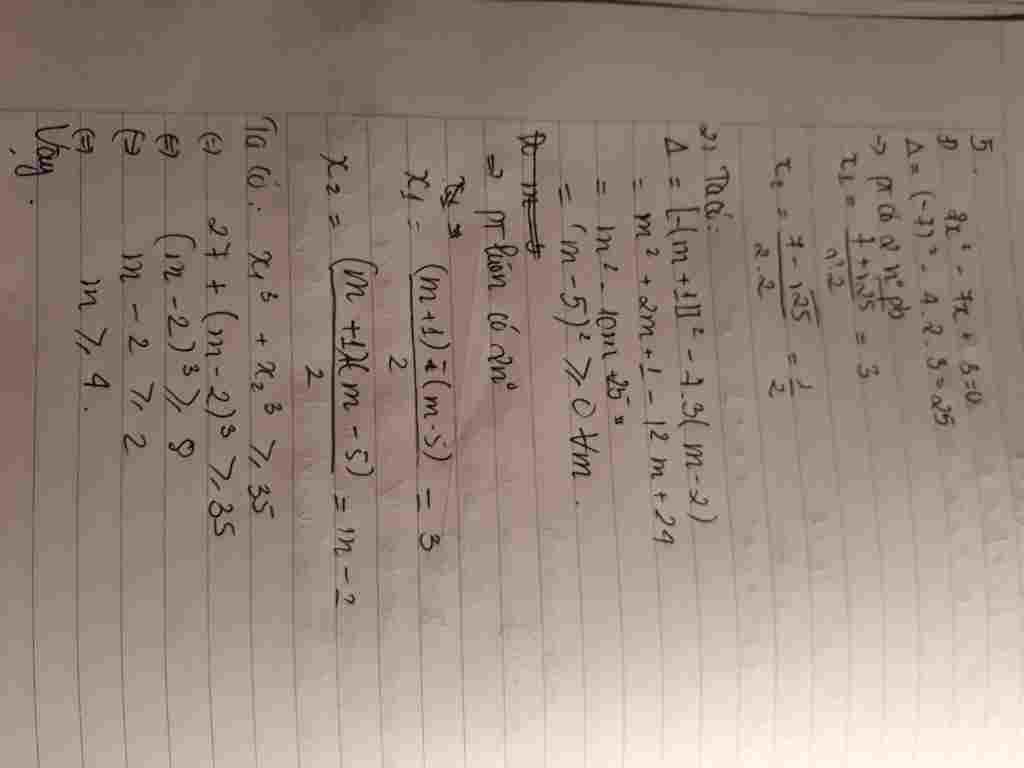 5.
1) 2x² - 7x + 3 = 0
Δ = (-7)² - 4.2.3 = 25
→ pt có 2 n° pb
x₁ = (7 + √25)/(2.2) = 3
x₂ = (7 - √25)/(2.2) = 1/2
2) Ta có:
Δ = [-(m+1)]² - 4.3(m-2)
= m² + 2m + 1 - 12m + 24
= m² - 10m + 25
= (m-5)² ≥ 0 ∀m.
⇒ pt luôn có 2n°
x₁ = ((m+1) - (m-5))/2 = 3
x₂ = ((m+1)(m-5))/2 = m - 2
Ta có: x₁³ + x₂³ ≥ 35
(=) 27 + (m-2)³ ≥ 35
(=) (m-2)³ ≥ 8
(=) m - 2 ≥ 2
(=) m ≥ 4.
Vậy .